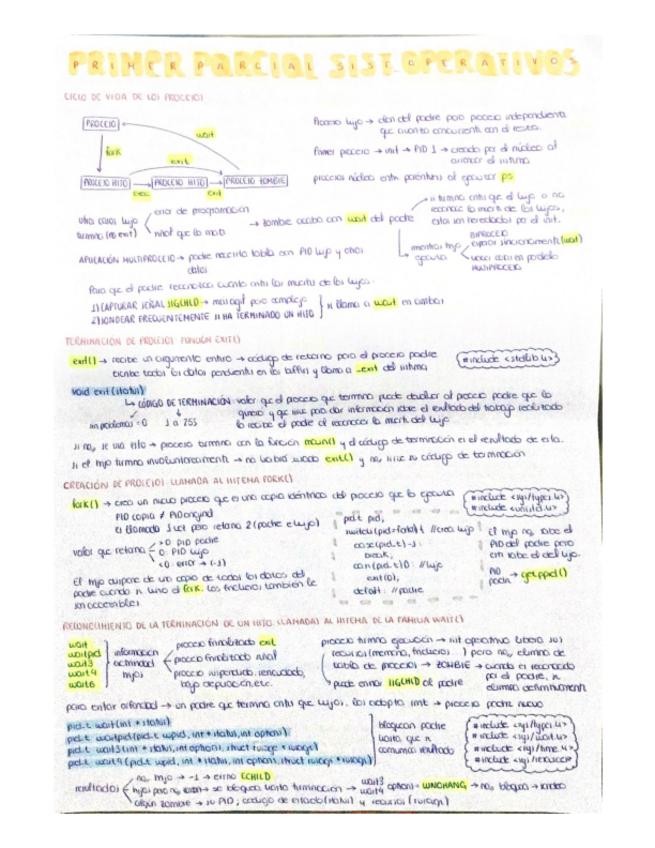 PRIMER PARCIAL SIST. OPERATIVOS
CICLO DE VIDA DE LOS PROCESOS
PROCESO
wait
fork
exit
PROCESO HIJO → PROCESO HIJO → PROCESO ZOMBIE
exec exit
Proceso hijo → clon del padre pero proceso independiente
que cuenta concurrente con el resto.
Primer proceso → init → PID 1 → creado por el núcleo al
arrancar el sistema
procesos núcleo entre paréntesis al ejecutar ps
otra causa hijo
termina (no exit)
error de programación
señal que lo mata
→ zombie acaba con wait del padre
si termina antes que el hijo o no
reconoce la muerte de los hijos,
estos son heredados por el init.
mientras hijo
ejecuta
BIPROCESO
esperar sincronamente (wait)
MULTIPROCESO
APLICACIÓN MULTIPROCESO → padre necesita tabla con PID hijo y otros
datos
Para que el padre reconozca cuanto antes las muertes de los hijos:
1) CAPTURAR SEÑAL SIGCHLD → mas ágil pero complejo
2) SONDEAR FRECUENTEMENTE SI HA TERMINADO UN HIJO
se llama a wait en ambas
TERMINACIÓN DE PROCESOS: FUNCIÓN EXIT()
exit() → recibe un argumento entero → código de retorno para el proceso padre
escribe todos los datos pendientes en los buffers y llama a _exit del sistema
#include <stdlib.h>
void exit(status)
CÓDIGO DE TERMINACIÓN: valor que el proceso que termina puede devolver al proceso padre que lo
generó y que sirve para dar información sobre el resultado del trabajo realizado
lo recibe el padre al reconocer la muerte del hijo
sin problemas = 0 1 a 255
si no se usa exit → proceso termina con la función main() y el código de terminación es el resultado de esta.
si el hijo termina involuntariamente → no habrá usado exit() y no tiene su código de terminación
CREACIÓN DE PROCESOS: LLAMADA AL SISTEMA FORK()
fork() → crea un nuevo proceso que es una copia idéntica del proceso que lo ejecuta
#include <sys/types.h>
#include <unistd.h>
PID copia ≠ PID original
es llamada 1 vez pero retorna 2 (padre e hijo)
valor que retorna
>0: PID padre
0: PID hijo
<0: error → (-1)
El hijo dispone de una copia de todos los datos del
padre cuando se hizo el fork. Los ficheros también le
son accesibles
pid_t pid;
switch(pid=fork()){ //crea hijo
case(pid_t)-1:
break;
case(pid_t)0: //hijo
exit(0);
default: //padre
El hijo no sabe el
PID del padre pero
este sabe el del hijo.
→ getppid()
RECONOCIMIENTO DE LA TERMINACIÓN DE UN HIJO: LLAMADAS AL SISTEMA DE LA FAMILIA WAIT()
wait
waitpid
wait3
wait4
wait6
información
actividad
hijos
proceso finalizado exit
proceso finalizado señal
proceso suspendido, reanudado,
bajo depuración, etc.
proceso termina ejecución → sist operativo libera sus
recursos (memoria, ficheros...) pero no elimina de
tabla de procesos → ZOMBIE → cuando es reconocido
por el padre, se
elimina definitivamente
puede enviar SIGCHLD al padre
para evitar orfandad → un padre que termina antes que hijos, los adopta init → proceso padre nuevo
pid_t wait(int *status)
pid_t waitpid(pid_t wpid, int *status, int options)
pid_t wait3(int *status, int options, struct rusage *rusage)
pid_t wait4(pid_t wpid, int *status, int options, struct rusage *rusage)
bloquean padre
hasta que se
comunica resultado
#include <sys/types.h>
#include <sys/wait.h>
#include <sys/time.h>
#include <sys/resource.h>
resultados
no hijo → -1 → errno ECHILD
hijos pero no → se bloquea hasta terminación
wait3
wait4
options = WNOHANG → no bloquea →
algún zombie → su PID, código de estado (status) y recursos (rusage)